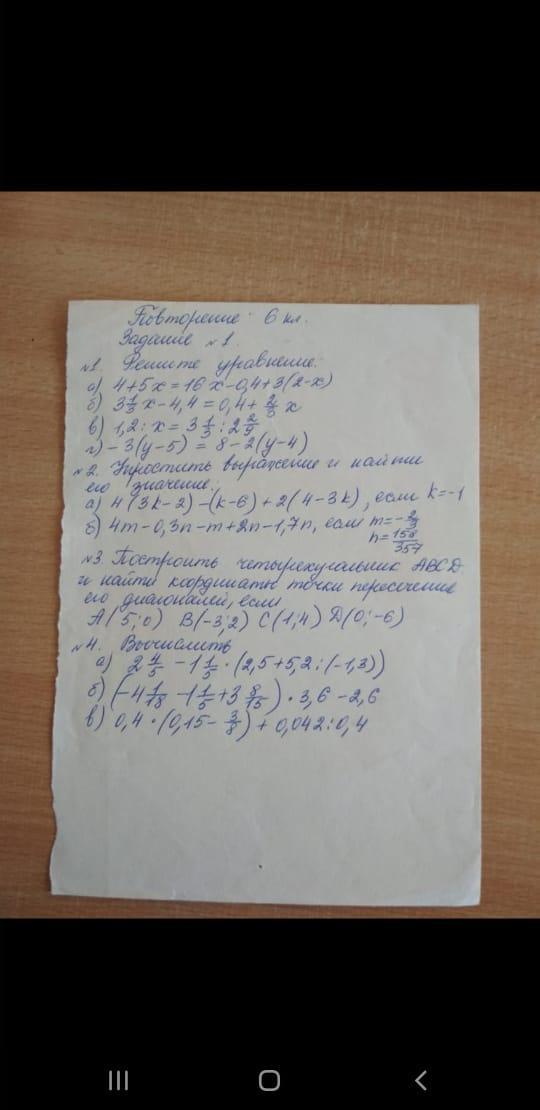 Повторение 6 кл.
Задание №1.
№1. Решите уравнение:
а) 4+5x=16x-0,4+3(2-x)
б) 3 1/3 x-4,4=0,4+ 2/3 x
в) 1,2:x=3 1/3:2 2/9
г) -3(y-5)=8-2(y-4)
№2. Упростить выражение и найти
его значение:
а) 4(3k-2)-(k-6)+2(4-3k), если k=-1
б) 4m-0,3n-m+2n-1,7n, если m=-2/3
n=158/357
№3. Построить четырехугольник ABCD
и найти координаты точки пересечение
его диагоналей, если
A(5;0) B(-3;2) C(1;4) D(0;-6)
№4. Вычислить
а) 2 4/5 -1 1/5·(2,5+5,2:(-1,3))
б) (-4 1/18 -1 1/5+3 8/15)·3,6-2,6
в) 0,4·(0,15-3/8)+0,042:0,4